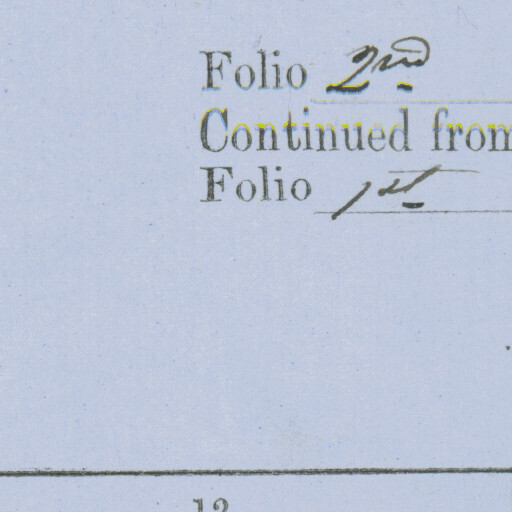 Folio 2nd
Continued from
Folio 1st
12